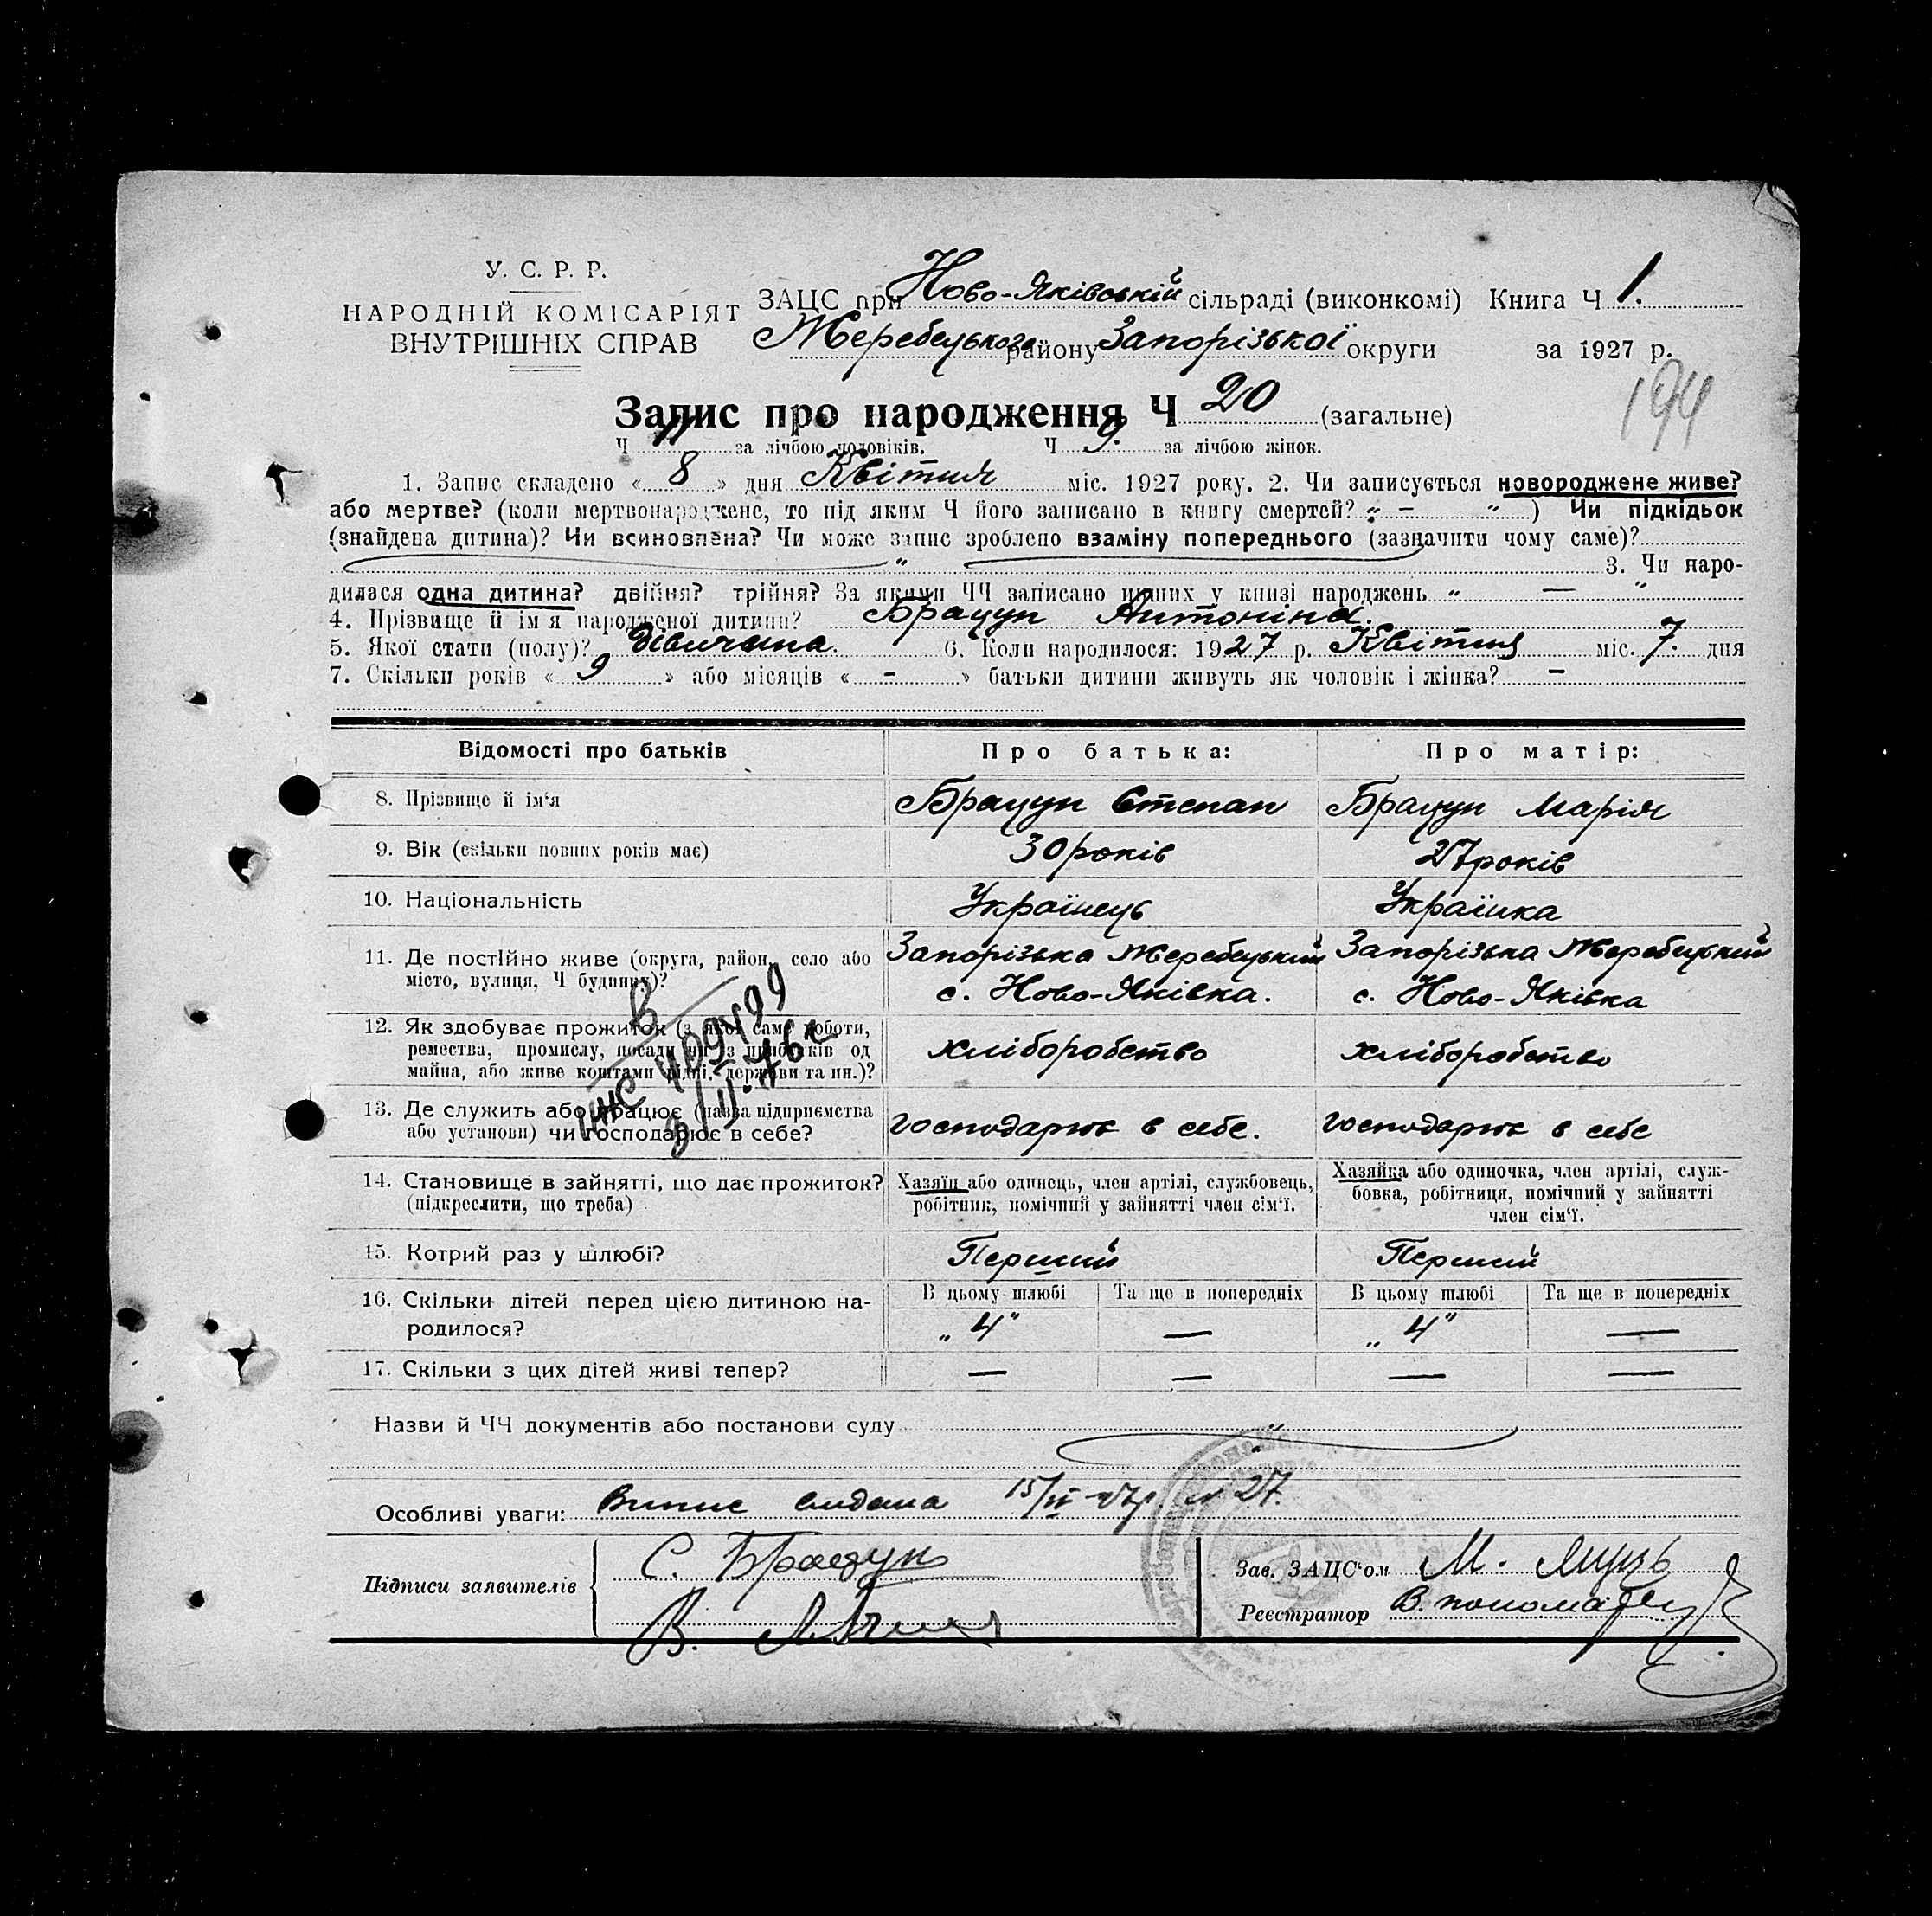 У. С. Р. Р.
НАРОДНІЙ КОМІСАРІЯТ
ВНУТРІШНІХ СПРАВ
ЗАЦС при Ново-Яківській сільраді (виконкомі) Книга Ч 1.
Жеребецького району Запорізької округи за 1927 р.
194
Запис про народження Ч 20 (загальне)
Ч 11 за лічбою чоловіків. Ч 9. за лічбою жінок.
1. Запис складено « 8 » дня Квітня міс. 1927 року. 2. Чи записується новороджене живе?
або мертве? (коли мертвонароджене, то під яким Ч його записано в книгу смертей? „ – “ ) Чи підкідьок
(знайдена дитина)? Чи всиновлена? Чи може запис зроблено взаміну попереднього (зазначити чому саме)?
„ 3. Чи наро-
дилася одна дитина? двійня? трійня? За якими ЧЧ записано инших у книзі народжень „ — “
4. Прізвище й ім'я народженої дитини? Брацун Антоніна.
5. Якої стати (полу)? дівчина. 6. Коли народилося: 1927 р. Квітня міс. 7. дня
7. Скільки років « 9 » або місяців « – » батьки дитини живуть як чоловік і жінка? –
Відомості про батьків Про батька: Про матір:
8. Прізвище й ім'я Брацун Степан Брацун Марія
9. Вік (скільки повних років має) 30 років 27 років
10. Національність Українець Українка
11. Де постійно живе (округа, район, село або Запорізька Жеребецький Запорізька Жеребецький
місто, вулиця, Ч будинку)? с. Ново-Яківка. с. Ново-Яківка
12. Як здобуває прожиток (з якої саме роботи,
ремества, промислу, посади чи з прибутків од хліборобство хліборобство
майна, або живе коштами рідні, держави та ин.)?
13. Де служить або працює (назва підприємства
або установи) чи господарює в себе? господарює в себе. господарює в себе
14. Становище в зайнятті, що дає прожиток? Хазяїн або одинець, член артілі, службовець, Хазяйка або одиночка, член артілі, служ-
(підкреслити, що треба) робітник, помічний у зайнятті член сім'ї. бовка, робітниця, помічний у зайнятті
член сім'ї.
15. Котрий раз у шлюбі? Перший Перший
16. Скільки дітей перед цією дитиною на- В цьому шлюбі Та ще в попередніх В цьому шлюбі Та ще в попередніх
родилося? „ 4 “ — „ 4 “ —
17. Скільки з цих дітей живі тепер? — — — —
Назви й ЧЧ документів або постанови суду „
Особливі уваги: Випис видана 15/IV-27р. № 27.
Підписи заявителів С. Брацун Зав. ЗАЦС'ом М.
В. Реєстратор В.